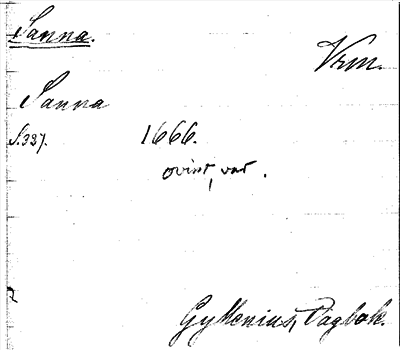 Sanna.
Vrm.
Sanna
S.337.
1666.
ovisst, var.
Gyllenius, Dagbok.